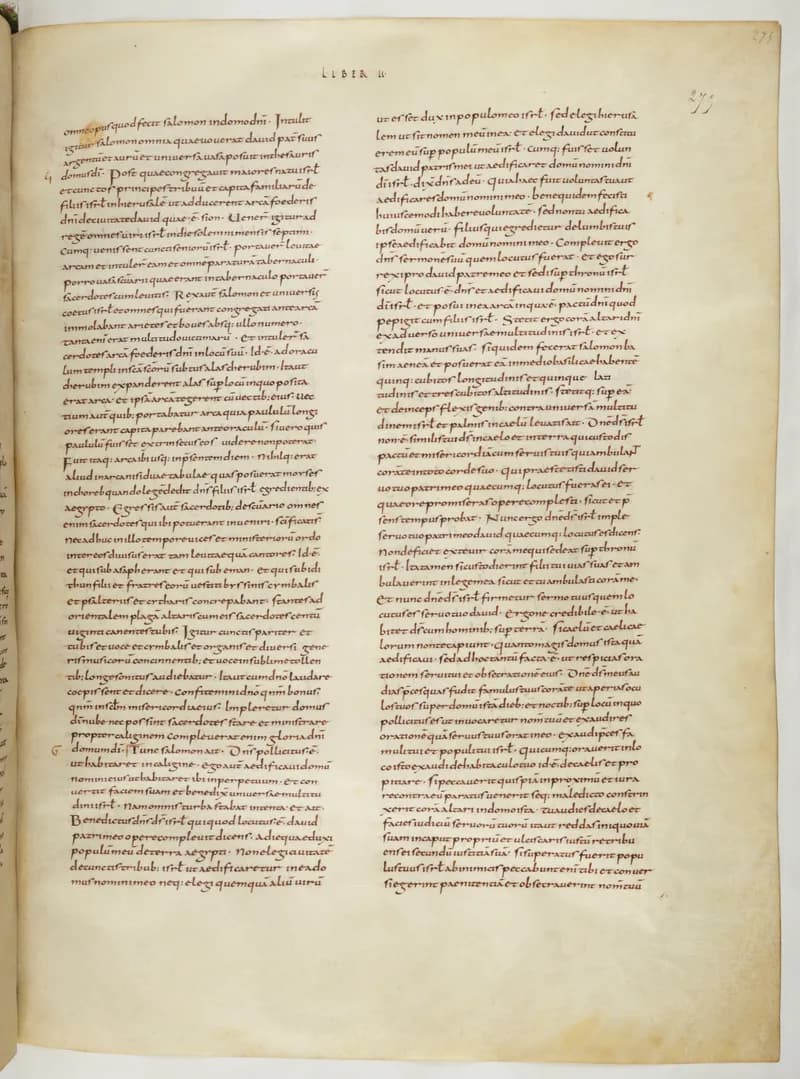 LIBER II·
275
279
omne opus quod fecit salomon in domo dnī· Intulit
igitur salomon omnia quae vouerat dauid pat suus
argentū et aurū et uniuersa uasa posuit inthesauris
domus dī· Post quae congregauit maiores natu isrł
et cunctos principes tribuū et capita familiarū de
filiis isrł in hierusalē ut adducerent arcā foederis
dnī de ciuitate dauid quae·ē·sion· Uener igitur ad
regē omnes uiri isrł in die solemni mensis septimi·
Cumq; uenissent cuncti seniorū isrł· portauer leuitae
arcam et intuler eam et omnē paraturā tabernaculi·
porro uasa scūarii quae erant in tabernaculo portauer
sacerdotes cum leuitis· Rex aut salomon et uniuersus
coetus isrł et omnes qui fuerant congregati ante arcā
immolabant arietes et boues absq; ullo numero·
tanta enī erat multitudo uictimarū· Et intuler sa
cerdotes arcā foederis dnī in locū suū· Id·ē·ad oracu
lum templi in scā scōrū subtus alas cherubim· Itaut
cherubim expanderent alas sup locū in quo posita
erat arca· et ipsā arcā tegerent cū uectib; eius· Uec
tium aut quib; portabatur arca quia paululū longi
ores erant capita parebant ante oraculū· si uero quis
paululū fuisset extrinsecus eos uidere non poterat·
Fuit itaq; arca ibi usq; in psentem diem· Nihilq; erat
aliud in arca nisi duae tabulae quas posuerat moyses
in choreb quando legē dedit dns filiis isrł egredientib; ex
aegypto· Egressis aut sacerdotib; de scūario omnes
enim sacerdotes qui ibi potuerant inueniri· scīficati sī
nec adhuc in illo tempore uices et ministeriorū ordo
inter eos diuisus erat tam leuitae quā cantores· Id·ē·
et qui sub asaph erant et qui sub eman· et qui sub idi
thun filii et fratres eorū uestiti byssinis cymbalis
et psalteriis et cytharis concrepabant· stantes ad
orientalem plagā altaris cum eis sacerdotes centū
uiginti canentes tubis· Igitur cunctis pariter et
tubis et uoce et cymbalis et organis et diuersi gene
ris musicorū concinnentib; et uoce in sublime tollen
tib; longe sonitus audiebatur· Itaut cum dnō laudare
coepissent et dicere· Confitemini dnō qnm bonus·
qnm in sclm misericordia eius· Impleretur domus
dī nube nec possint sacerdotes stare et ministrare
propter caliginem· Compleuerat enim gloria dnī
domum dī· Tunc salomon ait· Dns pollicitus·ē·
ut habitaret in caligine· ego aut aedificaui domū
nomini eius ut habitaret ibi in perpetuum· Et con
uertit faciem suam et benedix uniuersae multitu
dini isrł· Nam omnis turba stabat intenta· et ait·
Benedictus dns ds isrł qui quod locutus·ē·dauid
patri meo opere compleuit dicens· A die qua eduxi
populū meū de terra aegypti· Non elegi ciuitatē
de cunctis tribub; isrł ut aedificaretur in ea do
mus nomini meo neq; elegi quemquā aliū uirū
ut esset dux in populo meo isrł· sed elegi hierusa
lem ut sit nomen meū in ea· Et elegi dauid ut constitu
erem eū sup populū meū isrł· Cumq; fuisset uolun
tas dauid patris mei ut aedificaret domū nomini dnī
dī isrł· dix dns ad eū· Quia haec fuit uoluntas tua ut
aedificares domū nomini meo· bene quidem fecisti
huiuscemodi habere uoluntatē· sed non tu aedifica
bis domū uerū· filius qui egredietur de lumbis tuis
ipse aedificabit domū nomini meo· Compleuit ergo
dns sermonē suū quem locutus fuerat· Et ego sur
rexi pro dauid patre meo et sedi sup thronū isrł
sicut locutus·ē·dns et aedificaui domū nomini dnī
dī isrł· et posui in ea arcā in qua·ē·pactū dnī quod
pepigit cum filiis isrł· Stetit ergo corā altari dnī
ex aduerso uniuersae multitudinis isrł· et ex
tendit manus suas· siquidem fecerat salomon ba
sim aeneā et posuerat eā in medio basilicae habentē
quinq; cubitos longitudinis et quinque lati
tudinis et tres cubitos altitudinis· stetitq; sup eā·
et deinceps flexis genib; contra uniuersā multitu
dinem isrł et palmis in caelū leuatis ait· Dnē ds isrł
non·ē·similis tui ds in caelo et in terra qui custodis
pactū et misericordiā cum seruis tuis qui ambulant
corā te in toto corde suo· Qui praestitisti dauid ser
uo tuo patri meo quaecumq; locutus fueras ei· et
quae ore promiseras opere complesti· sicut et p
sens tempus probat· Nunc ergo dnē ds isrł imple
seruo tuo patri meo dauid quaecumq; locutus es dicens·
Non deficiet ex te uir corā me qui sedeat sup thronū
isrł· Ita tamen si custodierint filii tui uias suas et am
bulauerint in lege mea sicut et tu ambulasti corā me·
Et nunc dnē ds isrł firmetur sermo tuus quem lo
cutus es seruo tuo dauid· Ergone credibile·ē·ut ha
bitet ds cum hominib; sup terrā· si caelū et caeli cae
lorum non te capiunt· Quanto magis domus ista quā
aedificaui· sed ad hoc tantū facta·ē·ut respicias ora
tionem serui tui et obsecrationē eius· Dnē ds meus au
dias pces quas fudit famulus tuus corā te ut aperias ocu
los tuos super domū istā dieb; et noctib; sup locū in quo
pollicitus es ut inuocaretur nom tuū et exaudires
orationē quā seruus tuus orat in eo· exaudi pces fa
muli tui et populi tui isrł· Quicumq; orauerit in lo
co isto exaudi de habitaculo tuo id·ē·de caelis et pro
pitiare· si peccauerit quispiā in proximū et iura
re contra eū paratus uenerit seq; maledicto constrin
xerit corā altari in domo ista· Tu audies de caelo et
facies iudiciū seruorū tuorū itaut reddas iniquo uiā
suam in caput propriū et ulciscaris iustū retribu
ens ei secundū iustitiā suā· si superatus fuerit popu
lus tuus isrł ab inimicis peccabunt enī tibi et conuer
si egerint paenitentiā et obsecrauerint nom tuū